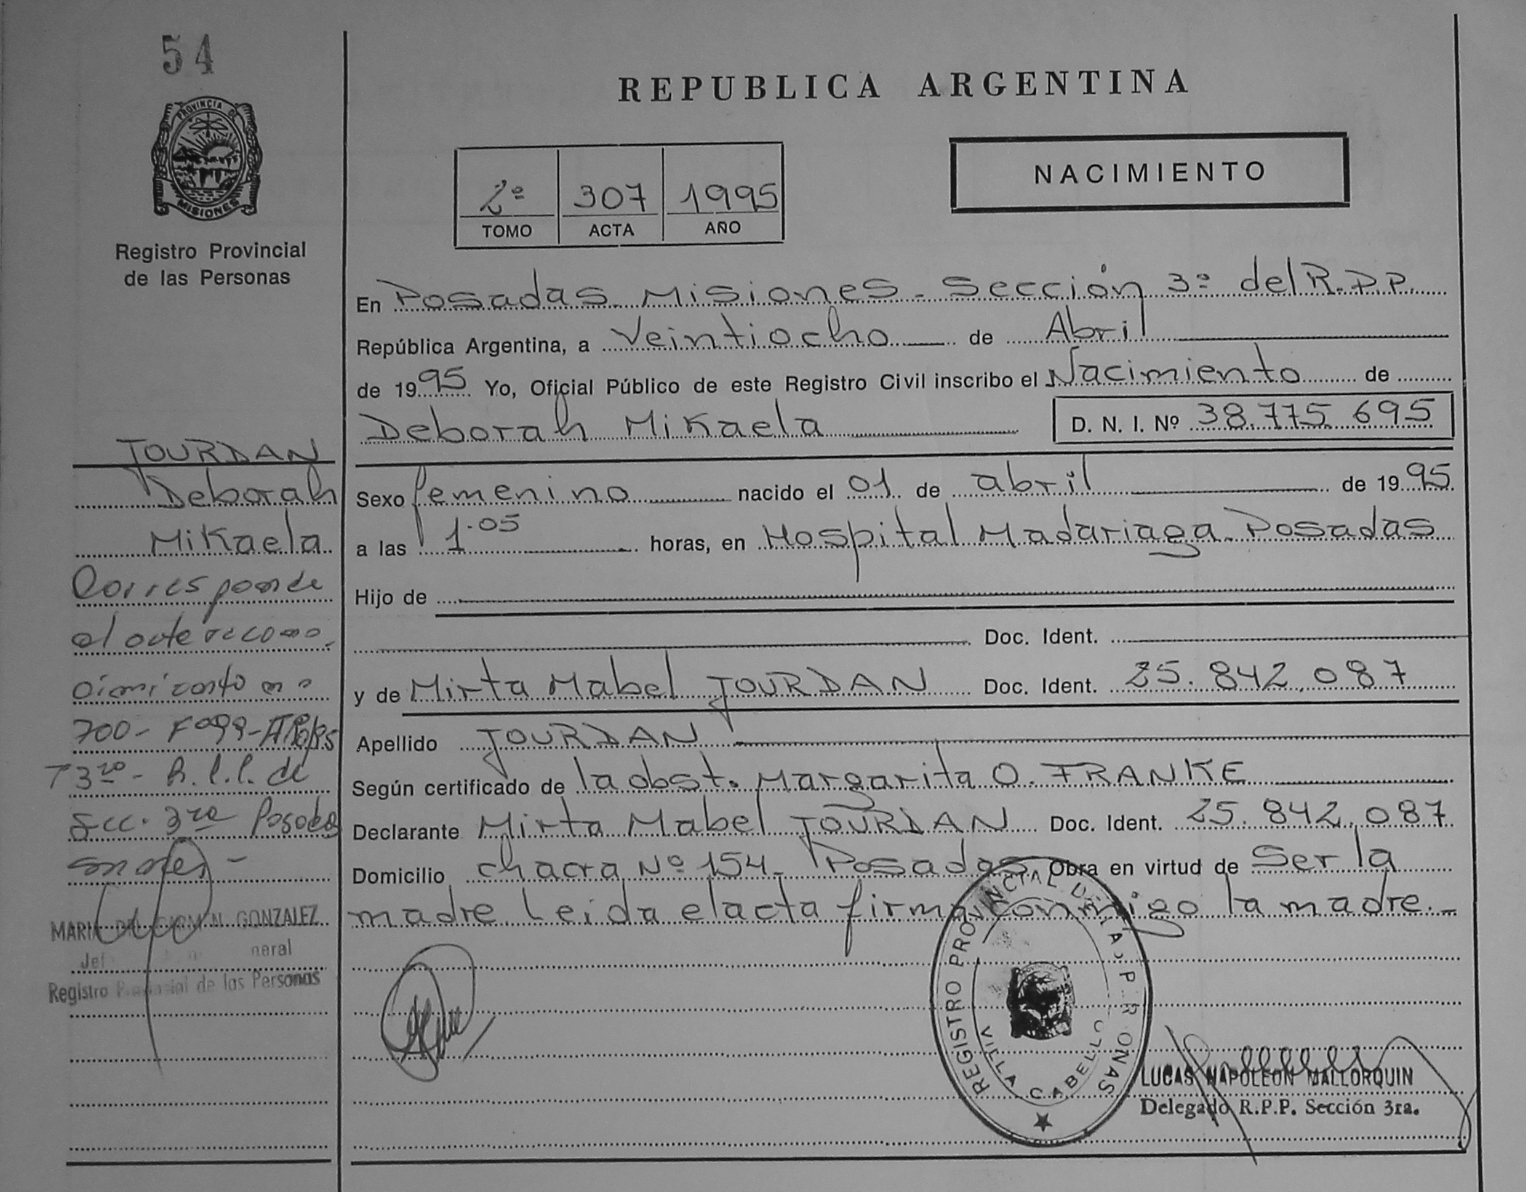 54
PROVINCIA DE
MISIONES
Registro Provincial
de las Personas
REPUBLICA ARGENTINA
2º 307 1995
TOMO ACTA AÑO
NACIMIENTO
En Posadas Misiones - Sección 3º del R.P.P.
República Argentina, a Veintiocho de Abril
de 1995 Yo, Oficial Público de este Registro Civil inscribo el Nacimiento de
Deborah Mikaela D. N. I. Nº 38.775.695
Sexo femenino nacido el 01 de abril de 1995
a las 1.05 horas, en Hospital Madariaga - Posadas
Hijo de
Doc. Ident.
y de Mirta Mabel JOURDAN Doc. Ident. 25.842.087
Apellido JOURDAN
Según certificado de la obst. Margarita O. FRANKE
Declarante Mirta Mabel JOURDAN Doc. Ident. 25.842.087
Domicilio chacra Nº 154 - Posadas Obra en virtud de Ser la
madre Leida el acta firma conmigo la madre.-
JOURDAN
Deborah
Mikaela
Corresponde
el acta recono-
cimiento nº
700 - Fº 99
T 3ro - de
Secc. 3ra Posadas
MARIA DEL CARMEN GONZALEZ
Registro Provincial de las Personas
REGISTRO PROVINCIAL DE LAS PERSONAS
VILLA CABELLO
LUCAS NAPOLEON MALLORQUIN
Delegado R.P.P. Sección 3ra.